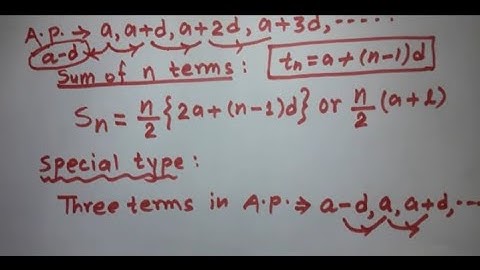 A.P.→ a, a+d, a+2d, a+3d, -----
a-d
Sum of n terms : tn = a+(n-1)d
Sn = n/2 {2a+(n-1)d} or n/2 (a+l)
special type :
Three terms in A.P.→ a-d, a, a+d, ---